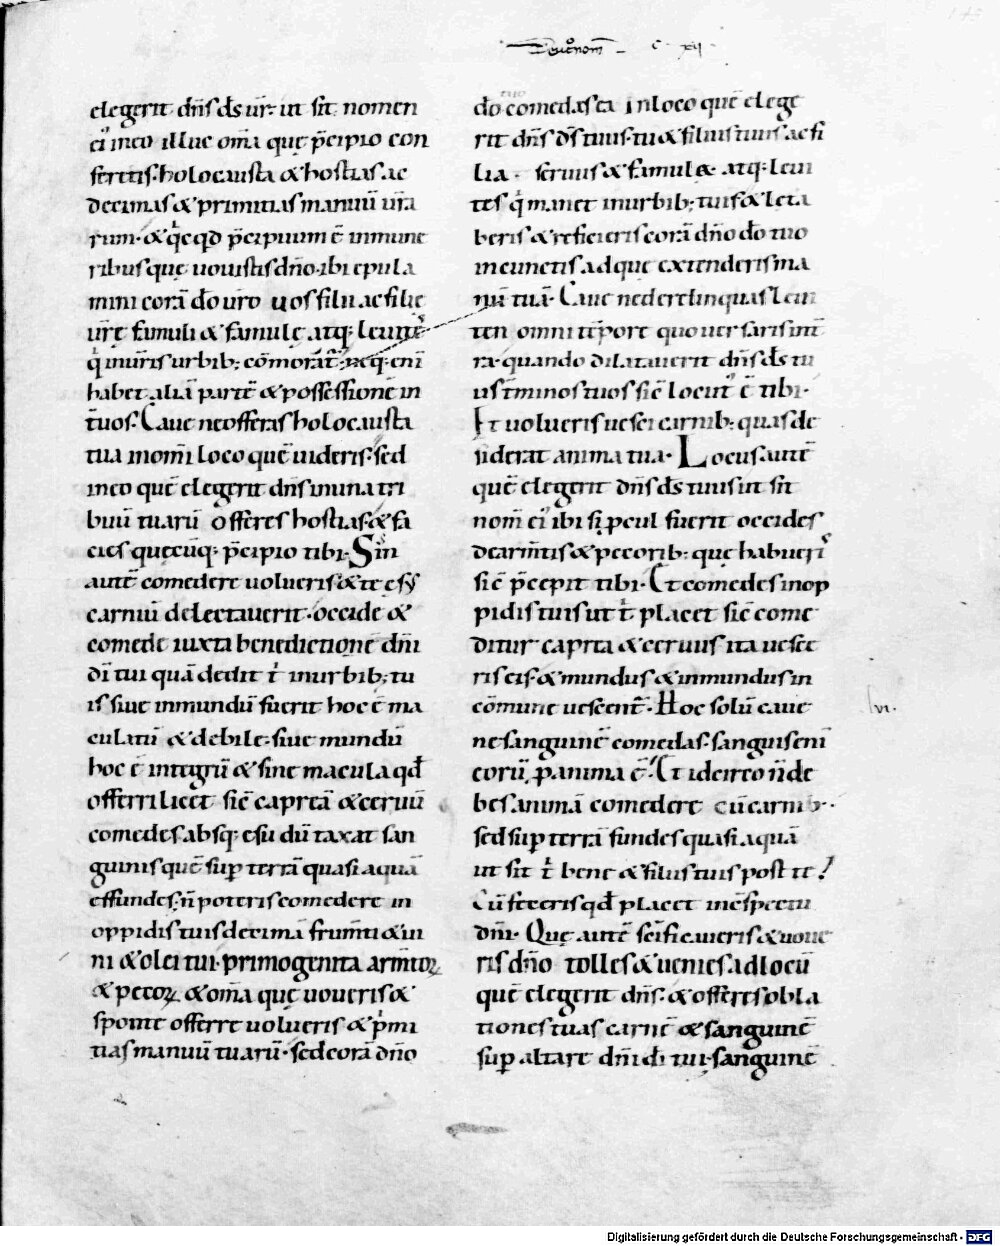 Deut̊onom̄ - c· xij
elegerit dn̄s d̄s ur̄· ut sit nomen
ei᾽ in eo illuc om̄a que p̄cipio con
feretis· holocausta & hostias ac
decimas & primitias manuū ur̄a
rum· & q̇cqd p̄cipuum ē in mune
ribus que uouistis dn̄o· ibi epula
mini corā dō uro Uos filii ac filie
ur̄e famuli & famule atq; leuites
q̇ in ur̄is urbib; cōmorāt᷑· neq; eni
habet aliā partē & possessionē in
t̄ uos· Caue ne offeras holocausta
tua in om̄i loco quē uideris· sed
in eo quē elegerit dn̄s in una tri
buū tuarū offeres hostias· & fa
cies quecūq; p̄cipio tibi· Sin
autē comedere uolueris & te ess
carniū delectauerit· occide &
comede iuxta benedictionē dn̄i
dī tui quā dedit t̄ in urbib; tu
is siue inmundū fuerit hoc ē ma
culatū & debile· siue mundū
hoc ē integrū & sine macula qd̄
offerri licet sic̄ capreā & ceruū
comedes absq; esu dū taxat san
guinis quē sup terrā quasi aquā
effundes· n̄ poteris comedere in
oppidis tuis decimā frum̄ti & ui
ni & olei tui· primogenita arm̄toꝝ
& pecoꝝ & om̄a que uoueris &
sponte offerre uolueris & p̄mi
tias manuū tuarū· sed corā dn̄o
tuo
dō comedas ea In loco quē elege
rit dn̄s d̄s tuus· tu & filius tuus ac fi
lia· seruus & famula· atq; leui
tes q̇ manet in urbib; tuis & leta
beris & reficieris corā dn̄o dō tuo
in cunctis ad que extenderis ma
nū tuā· Caue ne derelinquas leui
ten omni tēpore quo uersaris in t̄
ra· quando dilatauerit dn̄s d̄s tu
us t̄minos tuos sic̄ locut᾽ ē tibi·
Et uolueris uesci carnib; quas de
siderat anima tua· Locus autē
quē elegerit dn̄s d̄s tuus ut sit
nom̄ ei᾽ ibi si pcul fuerit occides
de arm̄tis & pecorib; que habueris
sic̄ p̄cepit tibi· Et comedes in op
pidis tuis ut t̄ placet sic̄ come
ditur caprea & ceruus ita uesce
ris eis· & mundus & inmundus in
cōmune uescent᷑· Hoc solū caue
lvi·
ne sanguinē comedas· sanguis enī
eorū p anima ē· Et idcirco n̄ de
bes animā comedere cū carnib;·
sed sup terrā fundes quasi aquā
ut sit t̄ bene & filiis tuis post te!
Cū feceris qd̄ placet in ɔspectu
dn̄i· Que autē sc̄ificaueris & uoue
ris dn̄o tolles & uenies ad locū
quē elegerit dn̄s· & offeres obla
tiones tuas carnē & sanguinē
sup altare dn̄i di tui· sanguinē
Digitalisierung gefördert durch die Deutsche Forschungsgemeinschaft - DFG